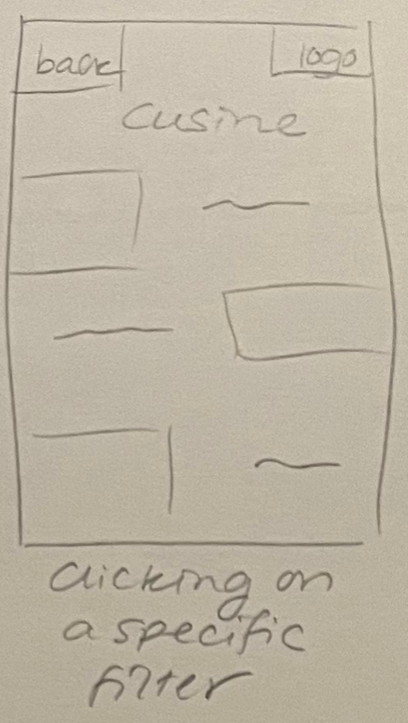 back
logo
Cusine
clicking on
a specific
filter